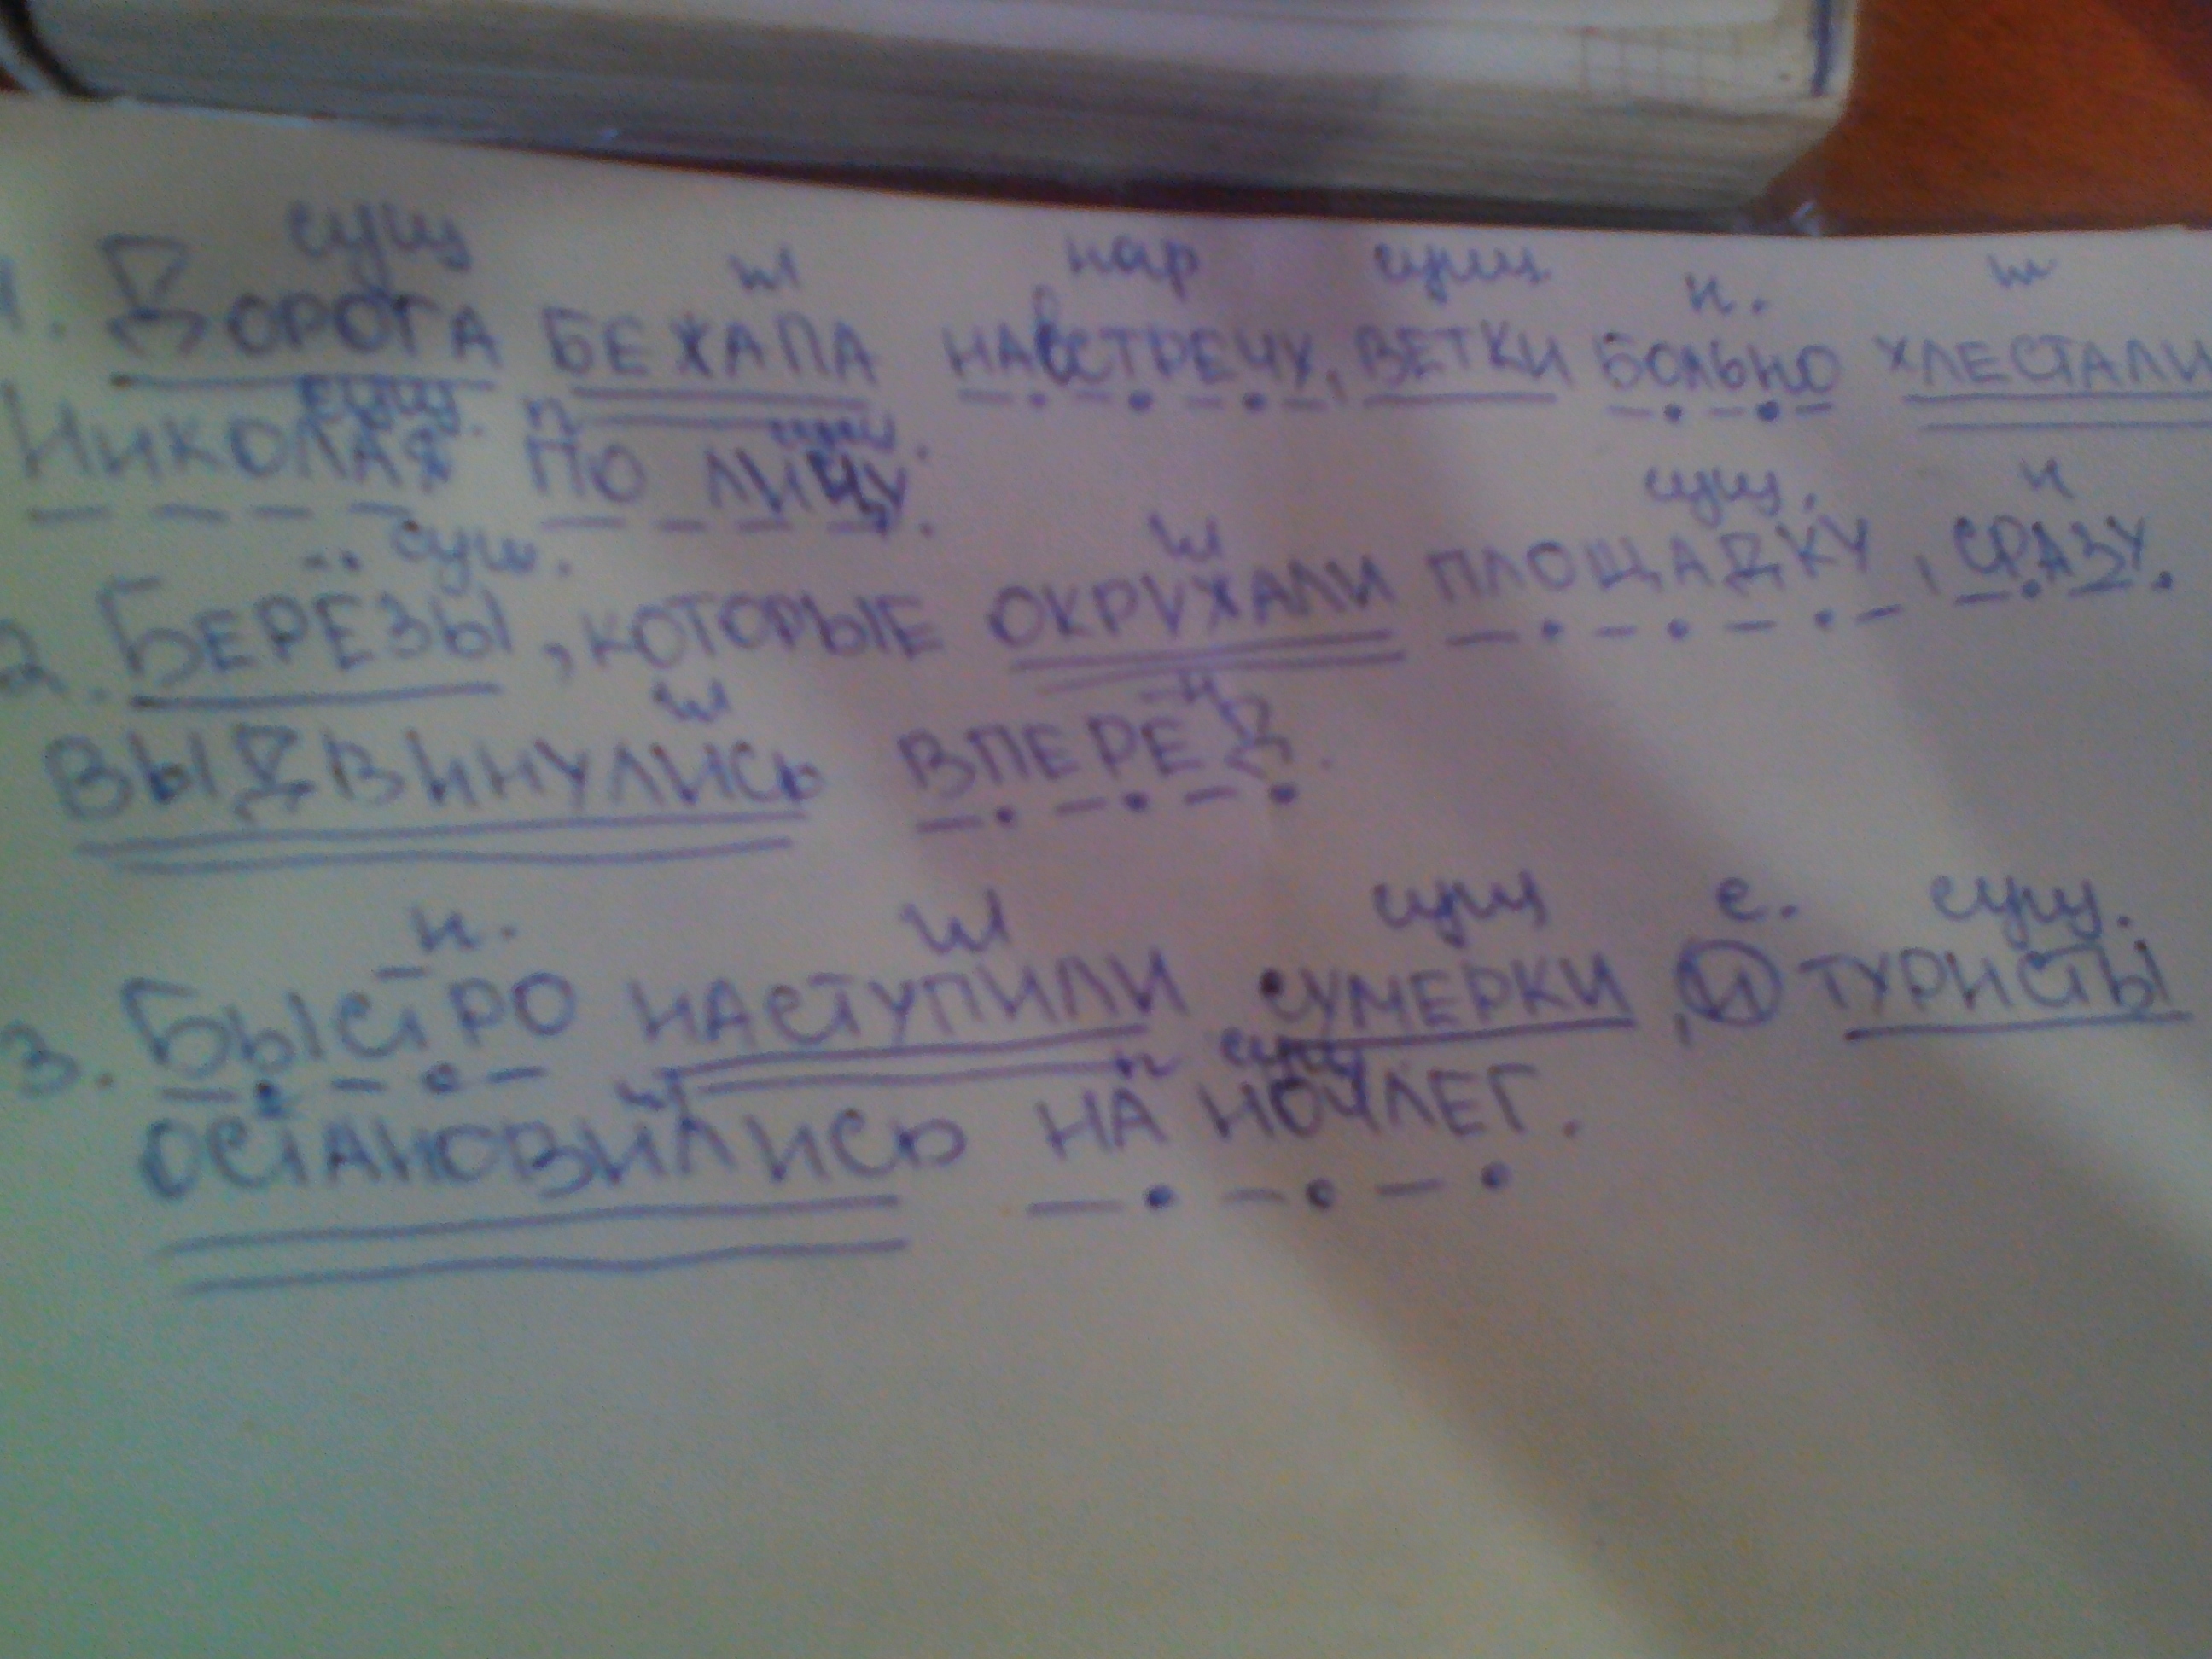 сущ нар сущ н.
1. Дорога бежала навстречу, ветки больно хлестали
сущ. п сущ.
Николая по лицу.
сущ. сущ. н
2. Берёзы, которые окружали площадку, сразу
н
выдвинулись вперед.
н. сущ с. сущ.
3. Быстро наступили сумерки, и туристы
п сущ
остановились на ночлег.